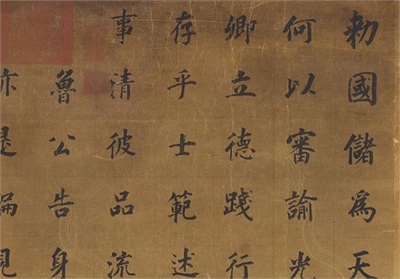 勅國儲為天
何以審諭光
卿立德踐行
存乎士範述
事清彼品流
魯公告身
亦是偏見